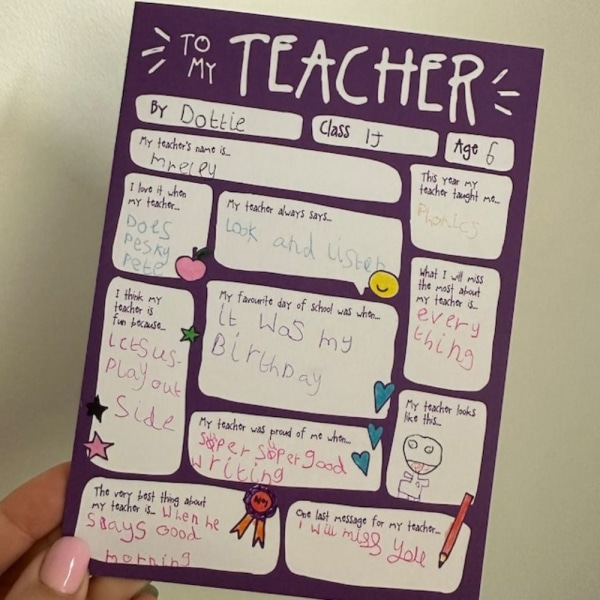 TO
MY
TEACHER
By Dottie
Class 1J
Age 6
My teacher's name is...
I love it when
my teacher...
Does
Pesky
Pete
My teacher always says...
Look and Listen
This year my
teacher taught me...
Phonics
I think my
teacher is
fun because...
LetSus
Play out
Side
My favourite day of school was when...
it was my
BirthDay
What I will miss
the most about
my teacher is...
every
thing
My teacher was proud of me when...
super super good
writing
My teacher looks
like this...
The very best thing about
my teacher is... when he
Says Good
morning
One last message for my teacher...
I will miss you